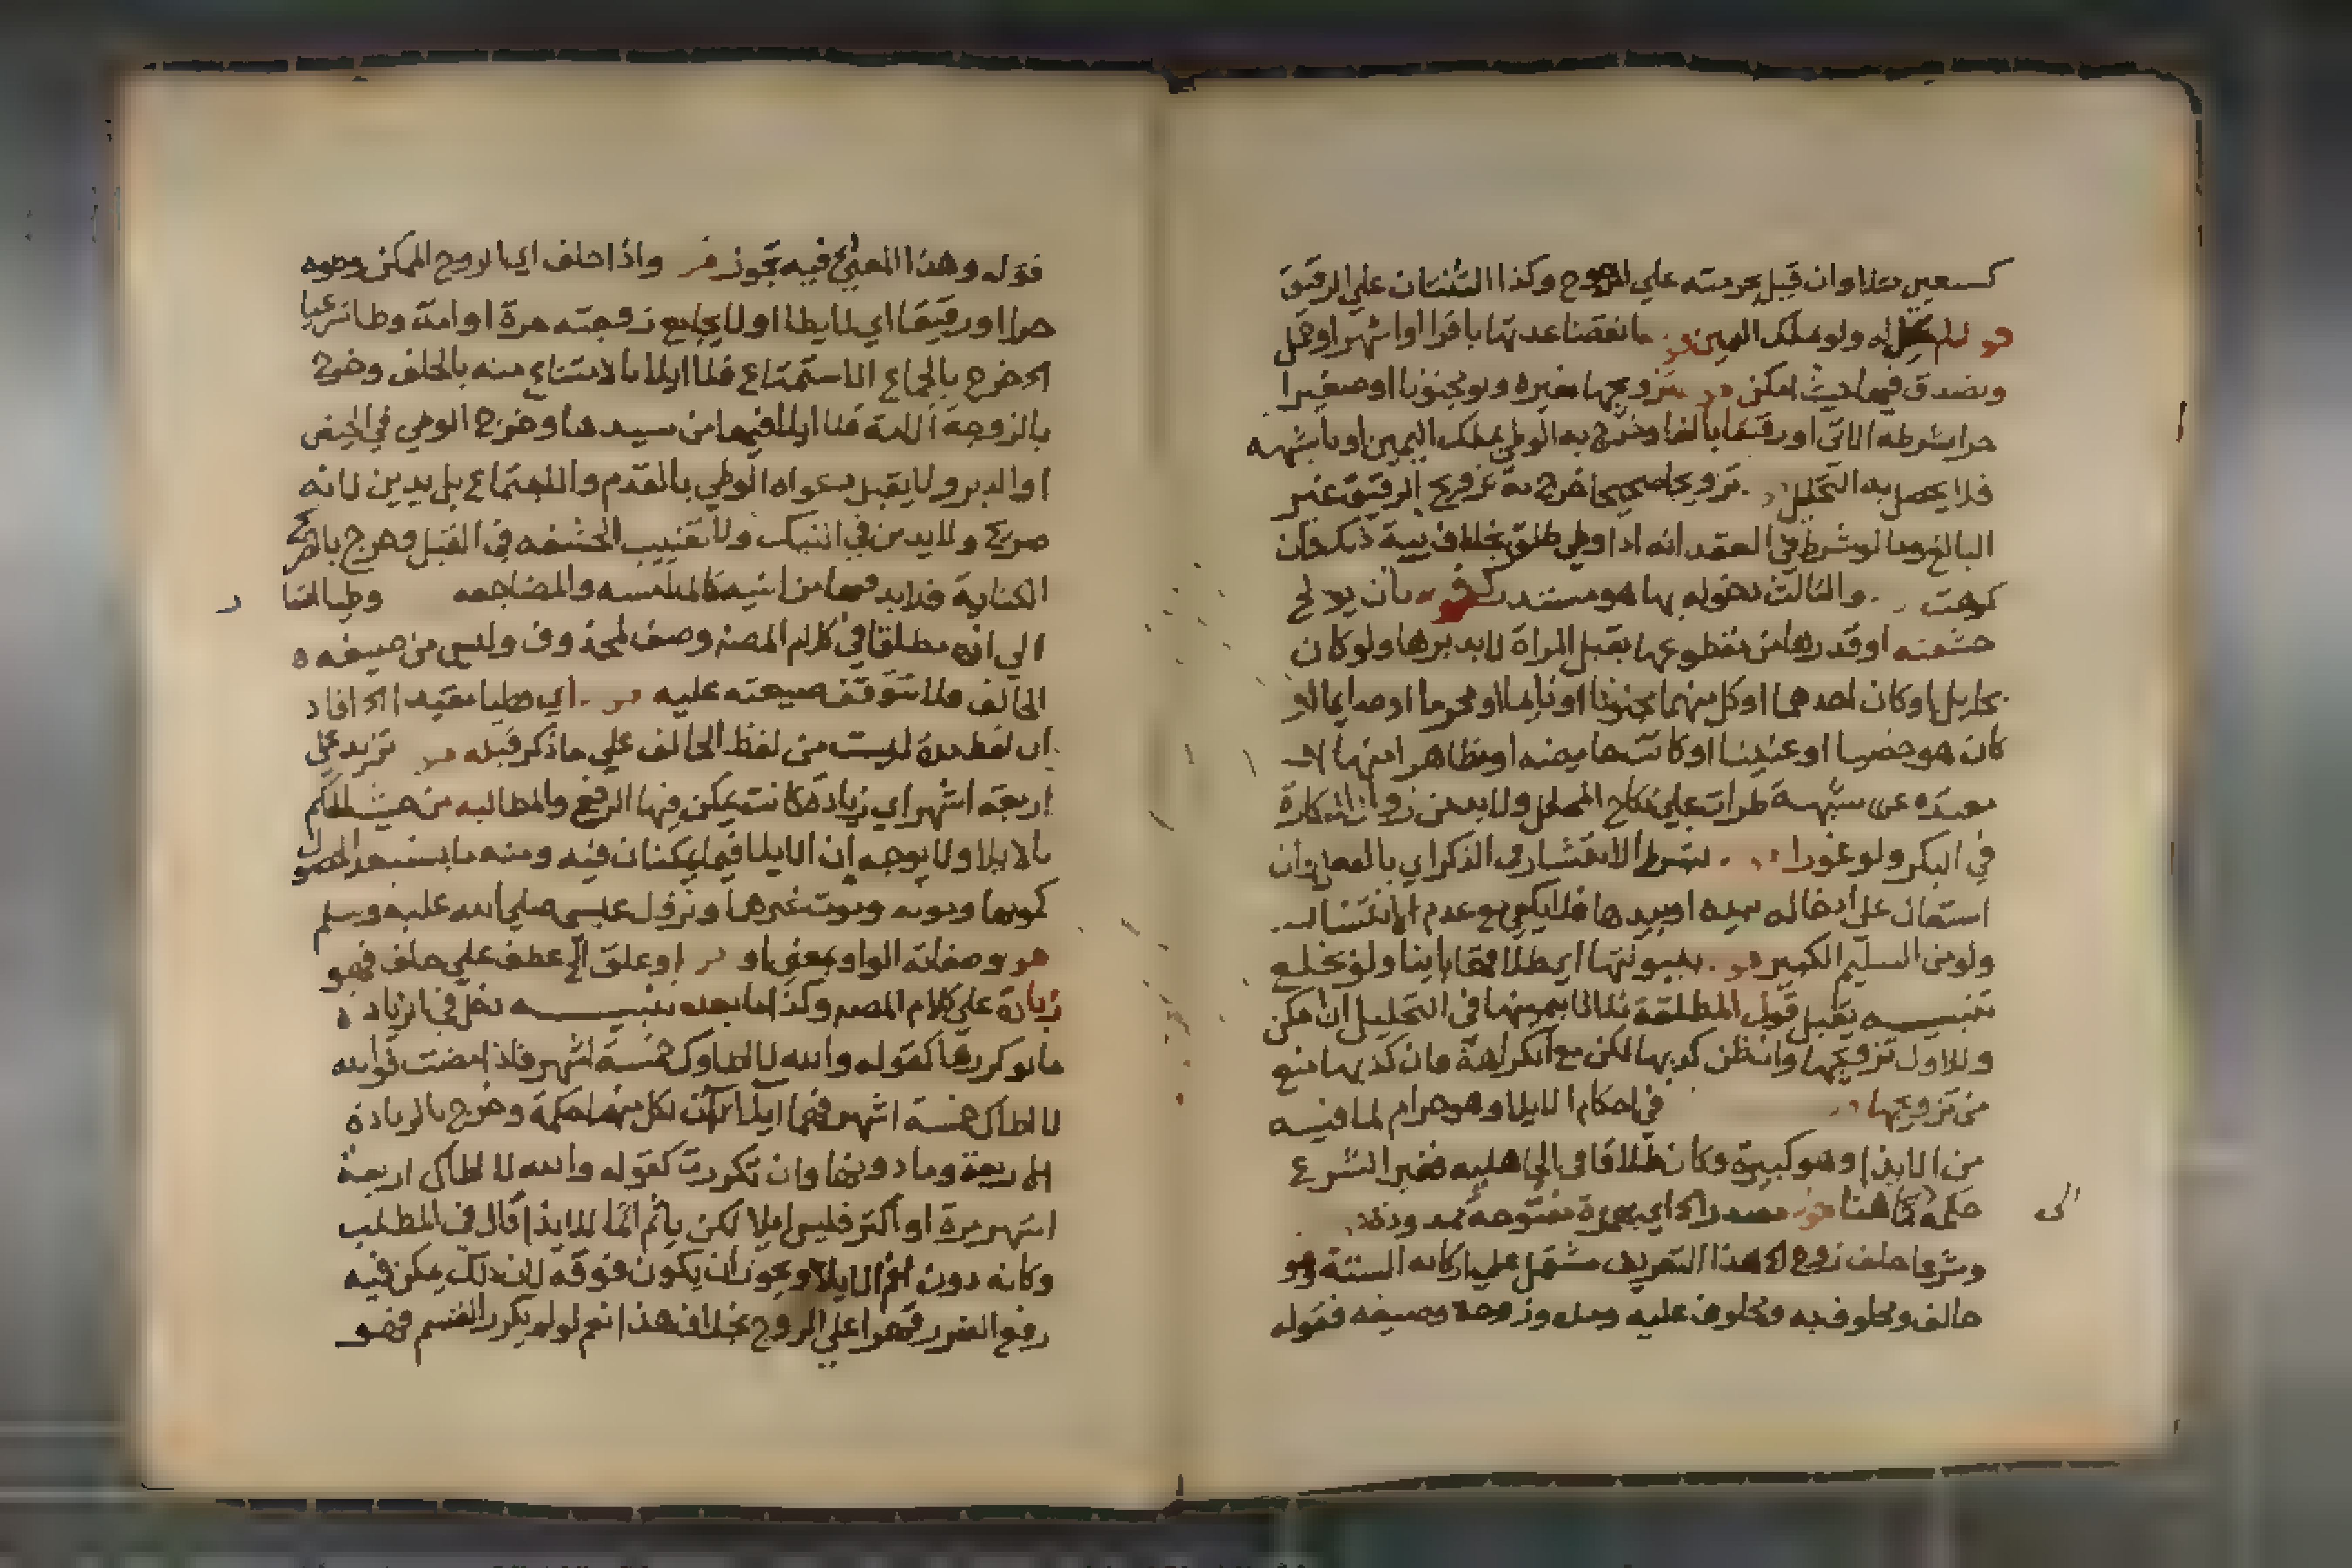 وان قيل بحرمته علي وكذا الثنتان علي الرقيق
ولو بملك اليمين ما نقضا عدتها باقرا او اشهر او حمل
ويصدق فيها حيث امكن تزويجها بغيره ولو مجنونا او صغيرا
حرا بشرطه الاتي او رقيقا بالغا وخرج به الوطي بملك اليمين او بالشبهه
فلا يحصل به التحليل تزويجا صحيحا خرج به تزويج الرقيق غير
البالغ وما لو شرط في العقد انه اذا وطي طلق بخلاف نية ذلك فان
كرهت والثالث دخوله بها هو بان يولج
حشفته او قدرها من مقطوعها بقبل المراة لا بدبرها ولو كان
بحايل او كان احدهما او كل منهما مجنونا او نايما او محرما او صايما او
كان هو خصيا او عنينا او كانت حايضه او مظاهرا منها او
معتده عن شبهة طرات علي نكاح المحلل ولا بد من زوال البكارة
في البكر ولو غورا بشرط الانتشار في الذكر اي بالفعل وان
استعان علي ادخاله بيده او بيدها فلا يكفي مع عدم الانتشار
ولو من السليم الكبير ببينونتها اي طلاقا باينا ولو بخلع
تنبيه يقبل قول المطلقة ثلاثا بيمينها في التحليل ان امكن
وللاول تزويجها وان ظن كذبها لكن مع الكراهة فان كذبها منع
من تزويجها في احكام الايلا وهو حرام لما فيه
من الايذا وهو كبيرة وكان طلاقا في الجاهليه فغير الشرع
حكمه هنا مصدر اي بهمزة مفتوحه ممدودة
الى
وشرعا حلف زوج هذا التعريف مشتمل علي اركانه الستة وهو
حالف ومحلوف به ومحلوف عليه وزوجه وصيغه فقوله
قوله وهذا المعني فيه تجوز واذا حلف اي الزوج الممكن وطوه
حرا او رقيقا اي لا يطا او لا يجامع زوجته حرة او امة وطا شرعيا
خرج بالجماع الاستمتاع فلا ايلا بالامتناع منه بالحلف وخرج
بالزوجة الامة فلا ايلا فيها من سيدها وخرج الوطي في الحيض
او الدبر ولا يقبل دعواه الوطي بالقدم والاجتماع بل يدين لانه
صريح ولا يدين في النيك ولا تغييب الحشفه في القبل وخرج بالصريح
الكناية فلا بد فيها من النيه كالملامسه والمضاجعه وطيا
الي ان مطلقا في كلام المصنف وصف لمحذوف وليس من صيغه
الحالف فلا تتوقف صيغته عليه اي وطيا مقيدا افاد
ان لفظ مدة ليست من لفظ الحالف علي ما ذكر قبله تزيد علي
اربعة اشهر اي زيادة كانت يمكن فيها الرفع والمطالبه من حيث الحكم
بالايلا ولا يوجه ان الايلا فيما يمكنان فيه ومنه ما يستبعد الحصول
كموتها وموته وموت غيرهما ونزول عيسي صلي الله عليه وسلم
هو وصفاته الواو بمعني او او علق عطف علي حلف فهو
زيادة علي كلام المصنف وكذا ما بعده تنبيه دخل في الزيادة
ما لو كررها كقوله والله لا اطاك خمسة اشهر فاذا مضت فوالله
لا اطاك خمسة اشهر فهما ايلاآن لكل منهما حكمه وخرج بالزيادة
الاربعة وما دونها وان تكررت كقوله والله لا اطاك اربعة
اشهر مرة او اكثر فليس ايلا لكن ياثم اثما للايذا قال في المطلب
وكانه دون اثم الايلا ويجوز ان يكون فوقه لان ذلك يمكن فيه
رفع الضرر قهرا علي الزوج بخلاف هذا نعم لو لم يكرر القسم فهو